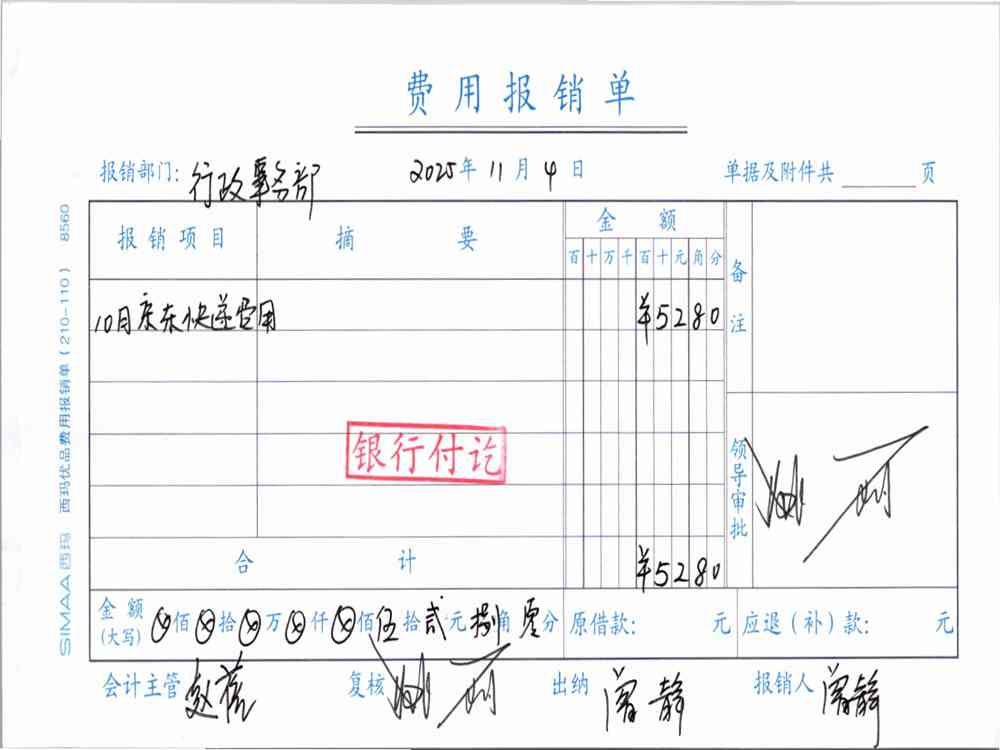 费用报销单
报销部门: 行政事务部 2025年 11月 4日 单据及附件共 页
报销项目 摘要 金额 备注
百 十 万 千 百 十 元 角 分
10月京东快递费用 ¥5280
银行付讫
领导审批
合计 ¥5280
金额(大写) ⊗佰 ⊗拾 ⊗万 ⊗仟 ⊗佰 伍拾 贰元 捌角 零分 原借款: 元 应退(补)款: 元
会计主管 复核 出纳 曾静 报销人 曾静
SIMAA西玛 西玛优品费用报销单(210-110) 8560